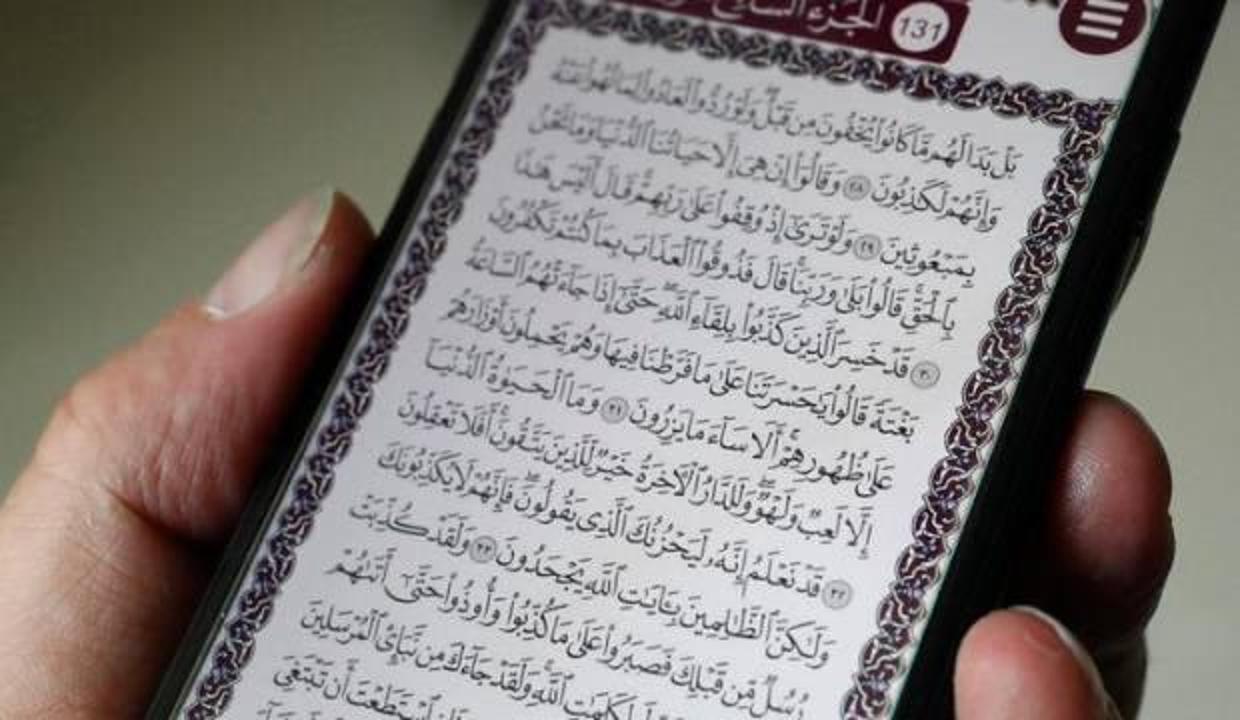 131 الجزء السابع
بَلْ بَدَا لَهُم مَّا كَانُوا۟ يُخْفُونَ مِن قَبْلُ ۖ وَلَوْ رُدُّوا۟ لَعَادُوا۟ لِمَا نُهُوا۟ عَنْهُ
وَإِنَّهُمْ لَكَـٰذِبُونَ ٢٨ وَقَالُوٓا۟ إِنْ هِىَ إِلَّا حَيَاتُنَا ٱلدُّنْيَا وَمَا نَحْنُ
بِمَبْعُوثِينَ ٢٩ وَلَوْ تَرَىٰٓ إِذْ وُقِفُوا۟ عَلَىٰ رَبِّهِمْ ۚ قَالَ أَلَيْسَ هَـٰذَا
بِٱلْحَقِّ ۚ قَالُوا۟ بَلَىٰ وَرَبِّنَا ۚ قَالَ فَذُوقُوا۟ ٱلْعَذَابَ بِمَا كُنتُمْ تَكْفُرُونَ
٣٠ قَدْ خَسِرَ ٱلَّذِينَ كَذَّبُوا۟ بِلِقَآءِ ٱللَّهِ ۖ حَتَّىٰٓ إِذَا جَآءَتْهُمُ ٱلسَّاعَةُ
بَغْتَةً قَالُوا۟ يَـٰحَسْرَتَنَا عَلَىٰ مَا فَرَّطْنَا فِيهَا وَهُمْ يَحْمِلُونَ أَوْزَارَهُمْ
عَلَىٰ ظُهُورِهِمْ ۚ أَلَا سَآءَ مَا يَزِرُونَ ٣١ وَمَا ٱلْحَيَوٰةُ ٱلدُّنْيَآ
إِلَّا لَعِبٌ وَلَهْوٌ ۖ وَلَلدَّارُ ٱلْـَٔاخِرَةُ خَيْرٌ لِّلَّذِينَ يَتَّقُونَ ۗ أَفَلَا تَعْقِلُونَ
٣٢ قَدْ نَعْلَمُ إِنَّهُۥ لَيَحْزُنُكَ ٱلَّذِى يَقُولُونَ ۖ فَإِنَّهُمْ لَا يُكَذِّبُونَكَ
وَلَـٰكِنَّ ٱلظَّـٰلِمِينَ بِـَٔايَـٰتِ ٱللَّهِ يَجْحَدُونَ ٣٣ وَلَقَدْ كُذِّبَتْ
رُسُلٌ مِّن قَبْلِكَ فَصَبَرُوا۟ عَلَىٰ مَا كُذِّبُوا۟ وَأُوذُوا۟ حَتَّىٰٓ أَتَىٰهُمْ
لِكَلِمَـٰتِ ٱللَّهِ ۚ وَلَقَدْ جَآءَكَ مِن نَّبَإِى۟ ٱلْمُرْسَلِينَ
ٱسْتَطَعْتَ أَن تَبْتَغِىَ